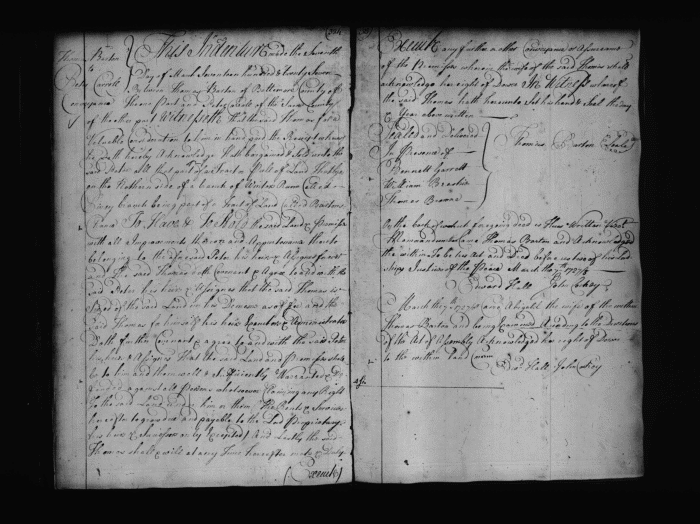 Thomas Barton
to
Peter Carroll
Conveyance
This Indenture made the Seventh
Day of March Seventeen hundred & twenty Seven
Between Thomas Barton of Baltimore County of
Thone Part and Peter Carroll of the Same County
of the other part Witnesseth that the said Thomas for a
Valuable Consideration to him in hand paid the Receipt whereof
he doth hereby Acknowledge Hath bargained & Sold unto the
said Peter all that part of a Tract or Parcel of Land
on the Northern side of a branch of Winters Run
branch being part of a Tract of Land called Bartons
To Have & To Hold the said Land & Premises
with all Improvements thereon and Appurtenances thereto
belonging to the aforesaid Peter his heirs & Assigns forever
And the said Thomas doth Covenant & Agree to and with the
said Peter his heirs & Assigns that the said Thomas is
of the said Land in his Demesne as of fee and the
said Thomas for himself & his heirs Executors & Administrators
Doth further Covenant & agree to and with the said Peter
his heirs & Assigns That the said Land and Premises
to him and them well & Sufficiently Warranted &
against all Persons whatsoever Claiming any Right
to the said Land under him or them The Rents & Services
hereafter to grow due and payable to the Lord Proprietary
his heirs & Successors only Excepted And Lastly the said
Thomas shall & will at any Time hereafter make & Duly
(Execute)
Execute any further or other Conveyance or Assurance
of the Premises whereon the wife of the said Thomas shall
acknowledge her right of Dower In Witness whereof
the said Thomas hath hereunto Set his hand & Seal the day
& Year above written
Sealed and Delivered
In Presence of
Bennett Garrett
William Bradford
Thomas Browne
Thomas Barton Seal
On the back of which foregoing deed is Thus Written
Memorandum Came Thomas Barton and Acknowledged
the within to be his Act and Deed before us two of his Lord
ships Justices of the Peace March the 7th 1727/8
Edward Hall John Stokey
March the 7th 1727/8 Came Abigail the wife of the within
Thomas Barton and being Examined According to the directions
of the Act of Assembly Acknowledged her right of Dower
to the within Land Coram
Edw Hall John Stokey